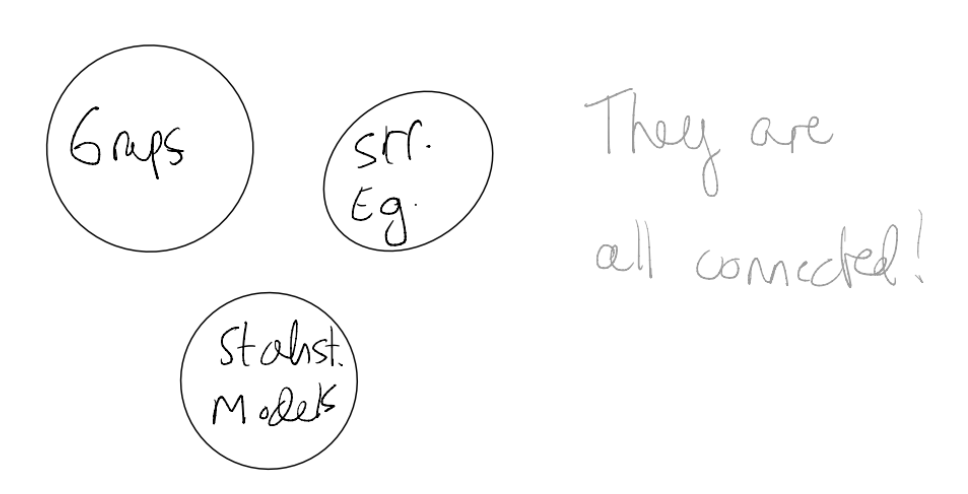 Graps
Str.
Eg.
Statist.
Models
They are
all connected!